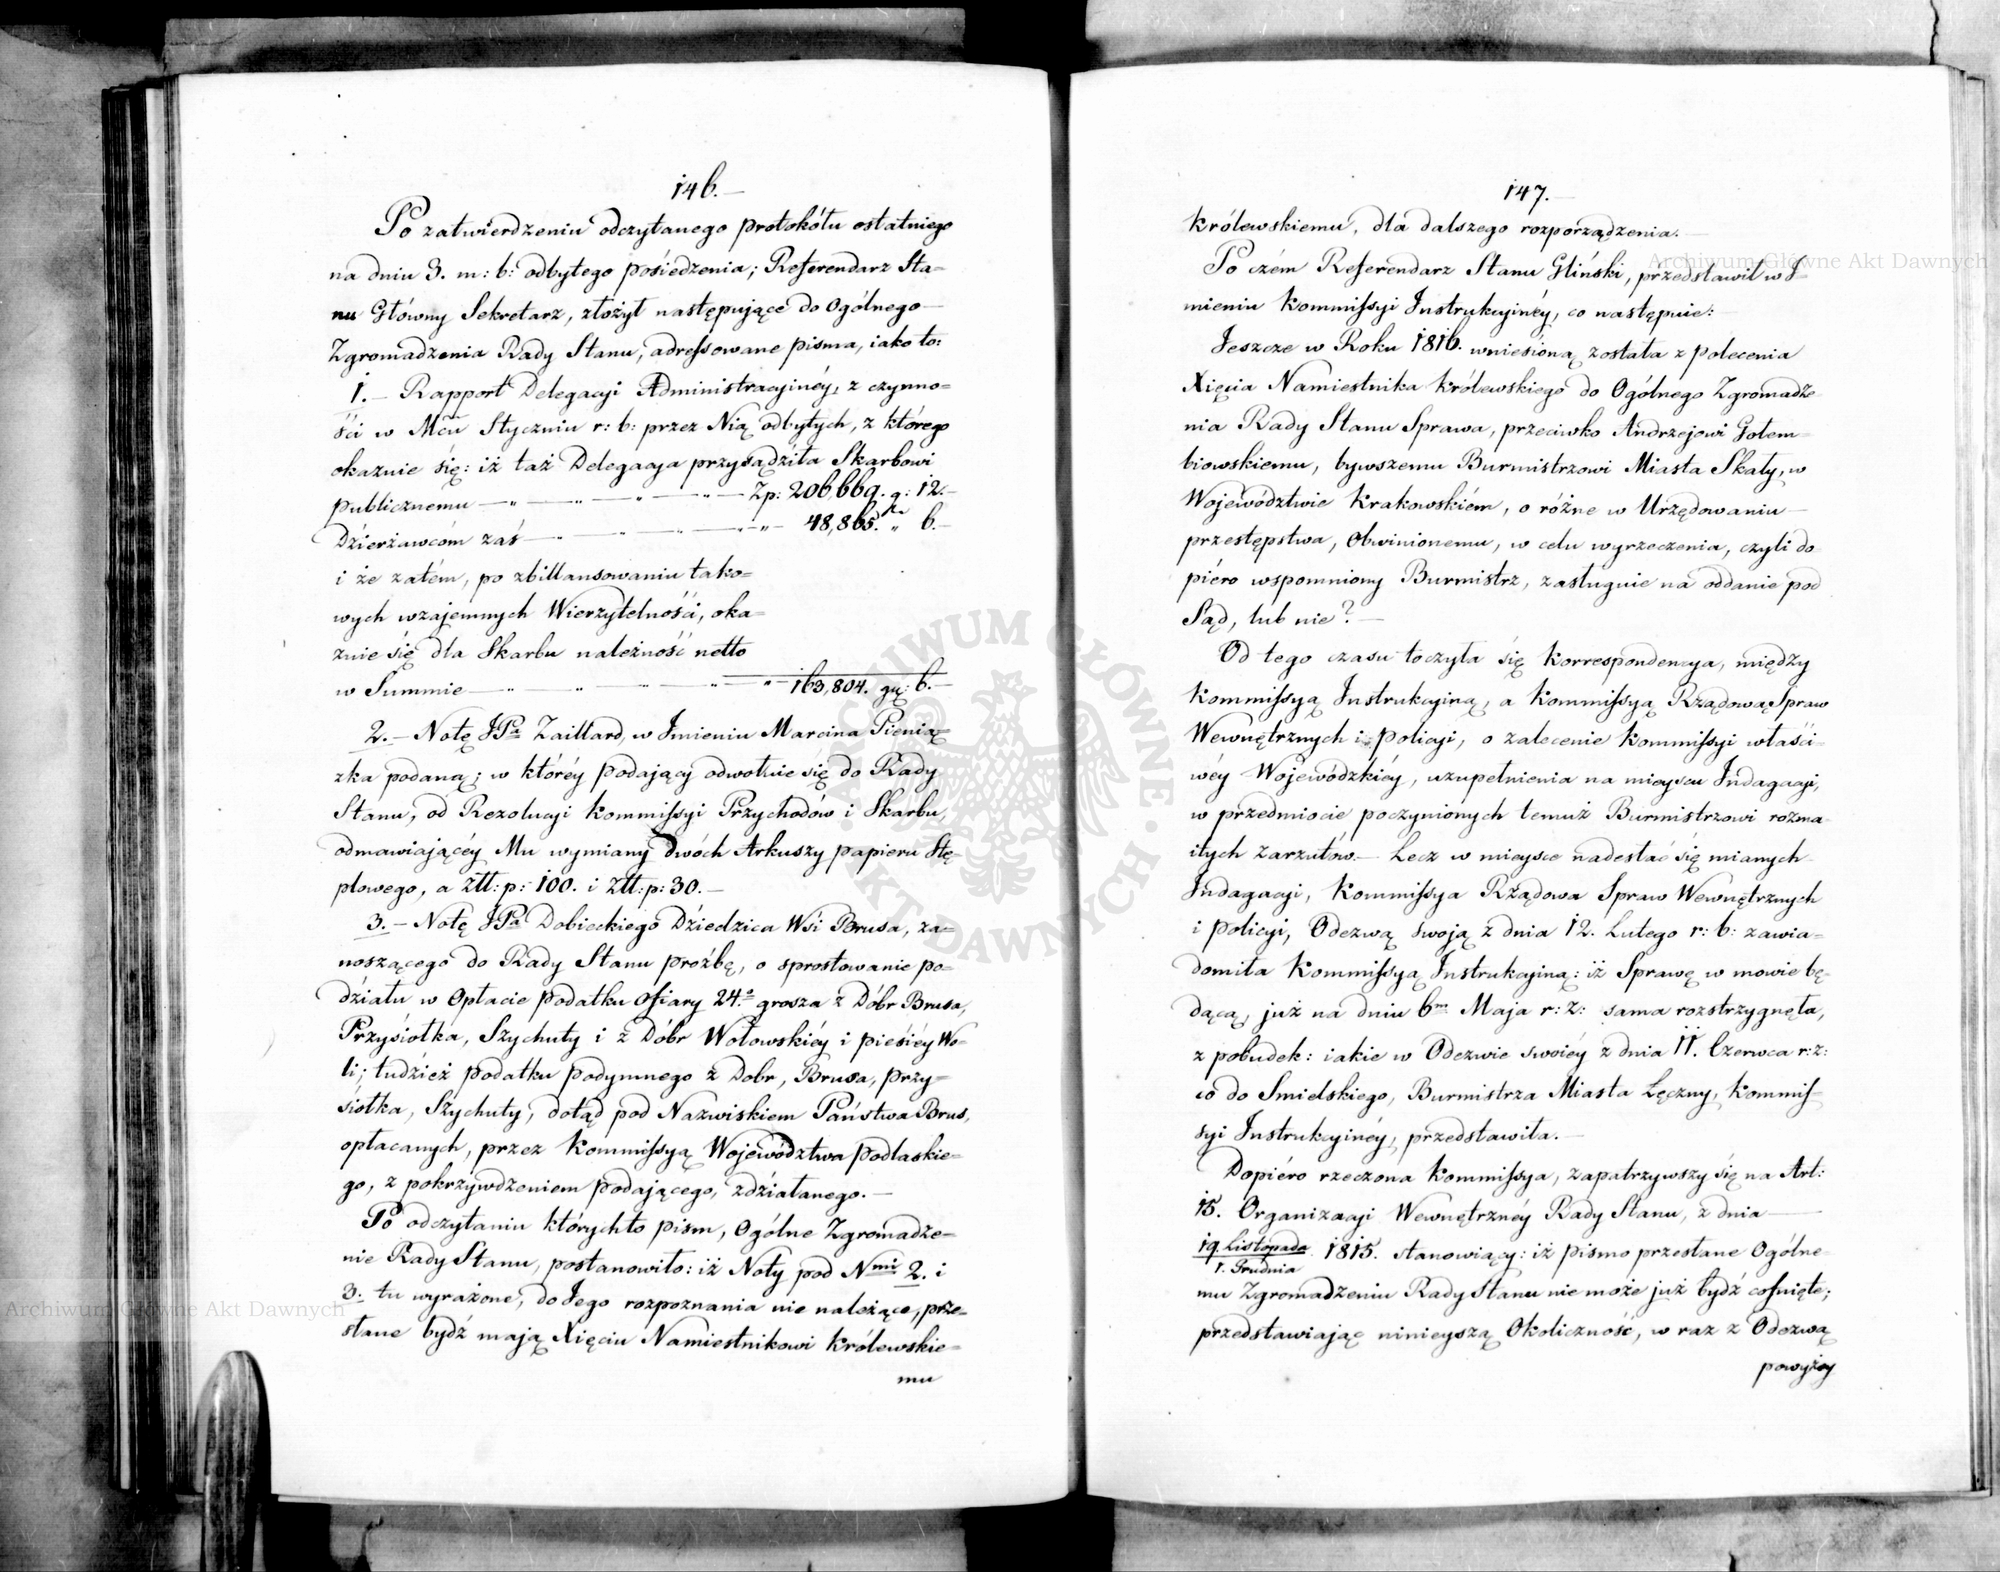 146.
Po zatwierdzeniu odczytanego protokółu ostatniego
na dniu 3. m: b: odbytego posiedzenia; Referendarz Sta=
nu Główny Sekretarz, złożył następujące do Ogólnego
Zgromadzenia Rady Stanu, adressowane pisma, iako to:
1. — Rapport Delegacyi Administracyinéy, z czynno=
ści w Mcu Styczniu r: b: przez Nią odbytych, z którego
okazuie się: iż taż Delegacya przysądziła Skarbowi
publicznemu — " — " — " — " — Zp: 206669. g: 12.—
Dzierżawcóm zaś — " — " — " — " — 48,865. " 6.—
i że zatém, po zbillansowaniu tako=
wych wzajemnych Wierzytelności, oka=
zuie się dla Skarbu należność netto
w Summie — " — " — " — " — 163,804. gr: 6.—
2. — Notę JPa Zaillard, w Jmieniu Marcina Pienią=
zka podaną; w któréy podający odwołuie się do Rady
Stanu, od Rezolucyi Kommissyi Przychodów i Skarbu,
odmawiającéy Mu wymiany dwóch Arkuszy papieru Stę=
plowego, a Złł: p: 100. i Złł: p: 30. —
3. — Notę JPa Dobieckiego Dziedzica Wsi Brusa, za=
noszącego do Rady Stanu prożbę, o sprostowanie po=
działu w Opłacie podatku Ofiary 24.o grosza z Dóbr Brusa,
Przysiołka, Szychuty i z Dóbr Wołowskiéy i piesiéy Wo=
li; tudzież podatku podymnego z Dobr, Brusa, przy=
siołka, Szychuty, dotąd pod Nazwiskiem Państwa Brus,
opłacanych, przez Kommissyą Województwa podlaskie=
go, z pokrzywdzeniem podającego, zdziałanego. —
Po odczytaniu którychto pism, Ogólne Zgromadze=
nie Rady Stanu, postanowiło: iż Noty pod Nmi 2. i
3. tu wyrażone, do Jego rozpoznania nie należące, prze=
słane bydź mają Xięciu Namiestnikowi Królewskie=
mu
147.
Królewskiemu, dla dalszego rozporządzenia. —
Po czém Referendarz Stanu Gliński, przedstawił w J=
mieniu Kommissyi Instrukcyinéy, co następuie:
Jeszcze w Roku 1816. wniesioną została z polecenia
Xięcia Namiestnika Królewskiego do Ogólnego Zgromadze=
nia Rady Stanu Sprawa, przeciwko Andrzejowi Gołem=
biowskiemu, bywszemu Burmistrzowi Miasta Skały, w
Województwie Krakowskiém, o różne w Urzędowaniu
przestępstwa, Obwinionemu, w celu wyrzeczenia, czyli do=
piéro wspomniony Burmistrz, zasługuie na oddanie pod
Sąd, lub nie? —
Od tego czasu toczyła się korrespondencya, między
Kommissyą Instrukcyiną, a Kommissyą Rządową Spraw
Wewnętrznych i policyi, o zalecenie Kommissyi właści=
wéy Wojewódzkiéy, uzupełnienia na mieyscu Indagacyi,
w przedmiocie poczynionych temuż Burmistrzowi rozma=
itych zarzutów. — Lecz w mieysce nadesłać się mianych
Indagacyi, Kommissya Rządowa Spraw Wewnętrznych
i policyi, Odezwą swoją z dnia 12. Lutego r: b: zawia=
domiła Kommissyą Instrukcyiną: iż Sprawę w mowie bę=
dącą, już na dniu 6m Maja r: z: sama rozstrzygnęła,
z pobudek: iakie w Odezwie swoiéy z dnia 11. Czerwca r: z:
co do Smielskiego, Burmistrza Miasta Łęczny, Kommis=
syi Instrukcyinéy, przedstawiła. —
Dopiéro rzeczona Kommissya, zapatrzywszy się na Art:
15. Organizacyi Wewnętrznéy Rady Stanu, z dnia
19. Listopada / 1. Grudnia 1815. stanowiący: iż pismo przesłane Ogólne=
mu Zgromadzeniu Rady Stanu nie może już bydź cofnięte;
przedstawiając ninieyszą Okoliczność, w raz z Odezwą
powyżey
Archiwum Główne Akt Dawnych
Archiwum Główne Akt Dawnych
ARCHIWUM GŁÓWNE AKT DAWNYCH